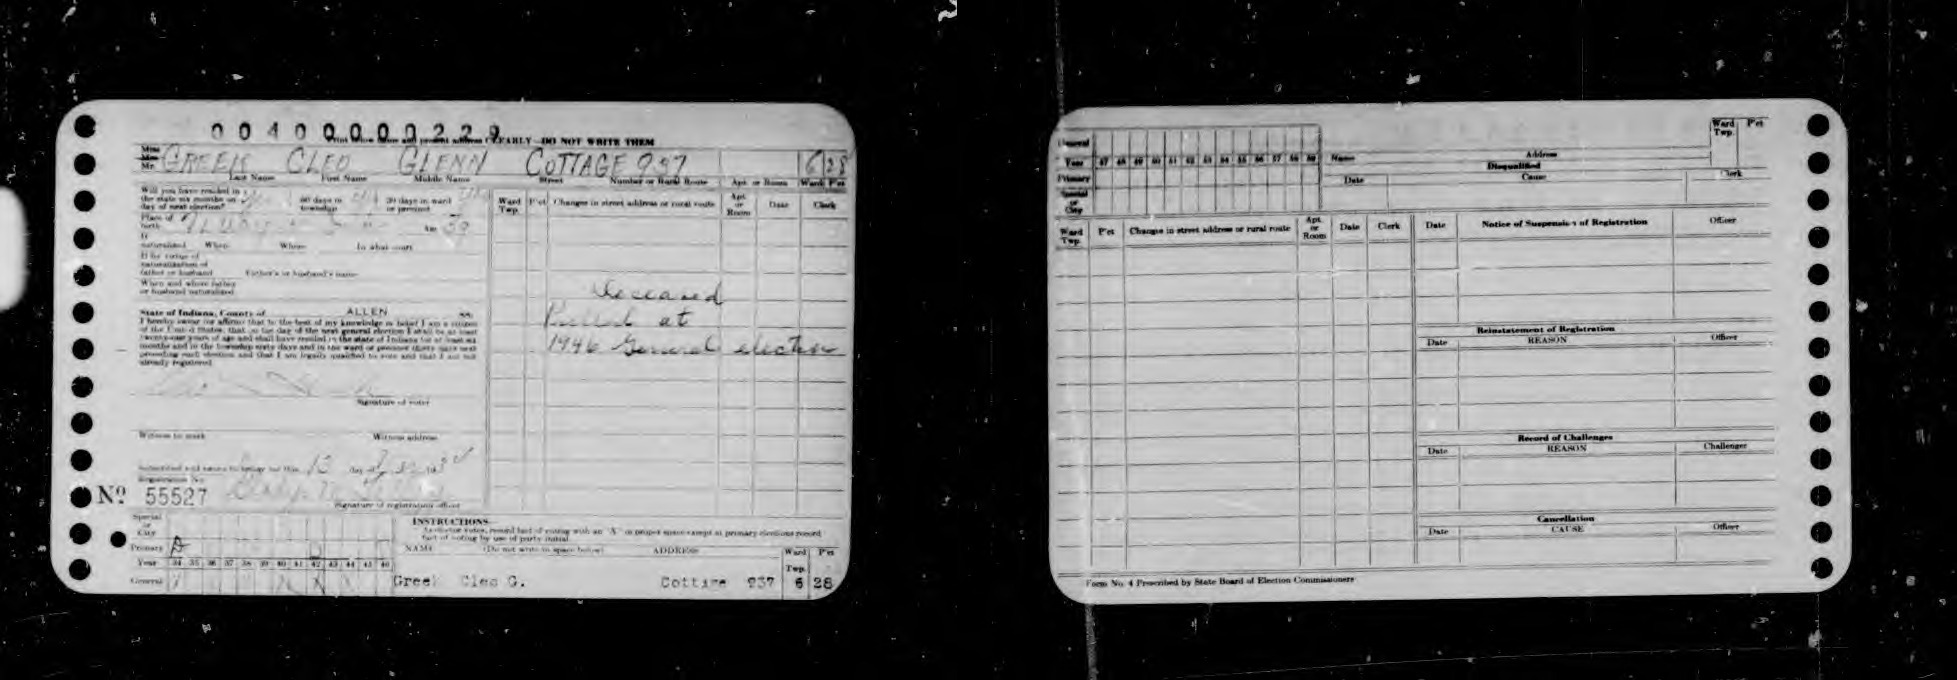 00400000229
CLEARLY—DO NOT WRITE THEM
Miss
Mrs.
Mr. GREEK CLEO GLENN COTTAGE 937 6 28
Last Name First Name Middle Name Street Number or Rural Route Apt. or Room Ward P'ct
Will you have resided in
the state six months on
day of next election?
60 days in
township
30 days in ward
or precinct
Place of
birth
Age 39
If
naturalized When Where In what court
If by virtue of
naturalization of
father or husband Father's or husband's name
When and where father
or husband naturalized
State of Indiana, County of ALLEN ss:
I hereby swear (or affirm) that to the best of my knowledge and belief I am a citizen
of the United States, that on the day of the next general election I shall be at least
twenty-one years of age and shall have resided in the state of Indiana for at least six
months and in the township sixty days and in the ward or precinct thirty days next
preceding such election and that I am legally qualified to vote and that I am not
already registered
Signature of voter
Witness to mark Witness address
Subscribed and sworn to before me this 15 day of
Registration No.
No 55527
Signature of registration officer
Ward
Twp. P'ct Changes in street address or rural route Apt.
or
Room Date Clerk
Deceased
Pulled at
1946 General election
Special
or
City
Primary D D
Year 34 35 36 37 38 39 40 41 42 43 44 45 46
General
INSTRUCTIONS—
After voter votes, record fact of voting with an "X" in proper space except at primary elections record
fact of voting by use of party initial.
NAME (Do not write in space below) ADDRESS Ward
Twp. P'ct
Greek Cleo G. Cottage 937 6 28
General
Year 47 48 49 50 51 52 53 54 55 56 57 58 59
Primary
Special
or
City
Name Address Ward
Twp. P'ct
Disqualified
Date Cause Clerk
Ward
Twp. P'ct Changes in street address or rural route Apt.
or
Room Date Clerk
Date Notice of Suspension of Registration Officer
Reinstatement of Registration
Date REASON Officer
Record of Challenges
Date REASON Challenger
Cancellation
Date CAUSE Officer
Form No. 4 Prescribed by State Board of Election Commissioners